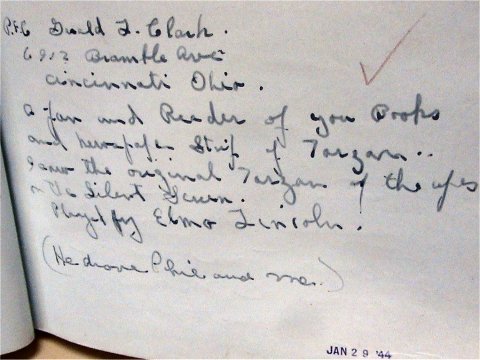 P.F.C Gerald F. Clark.
6912 Bramble Ave
Cincinnati Ohio.
a fan and Reader of you Books
and newspaper Strip of Tarzan..
I saw the original Tarzan of the apes
on the Silent Screen.
Played by Elmo Lincoln!
(He drove Phil and me.)
JAN 29 '44